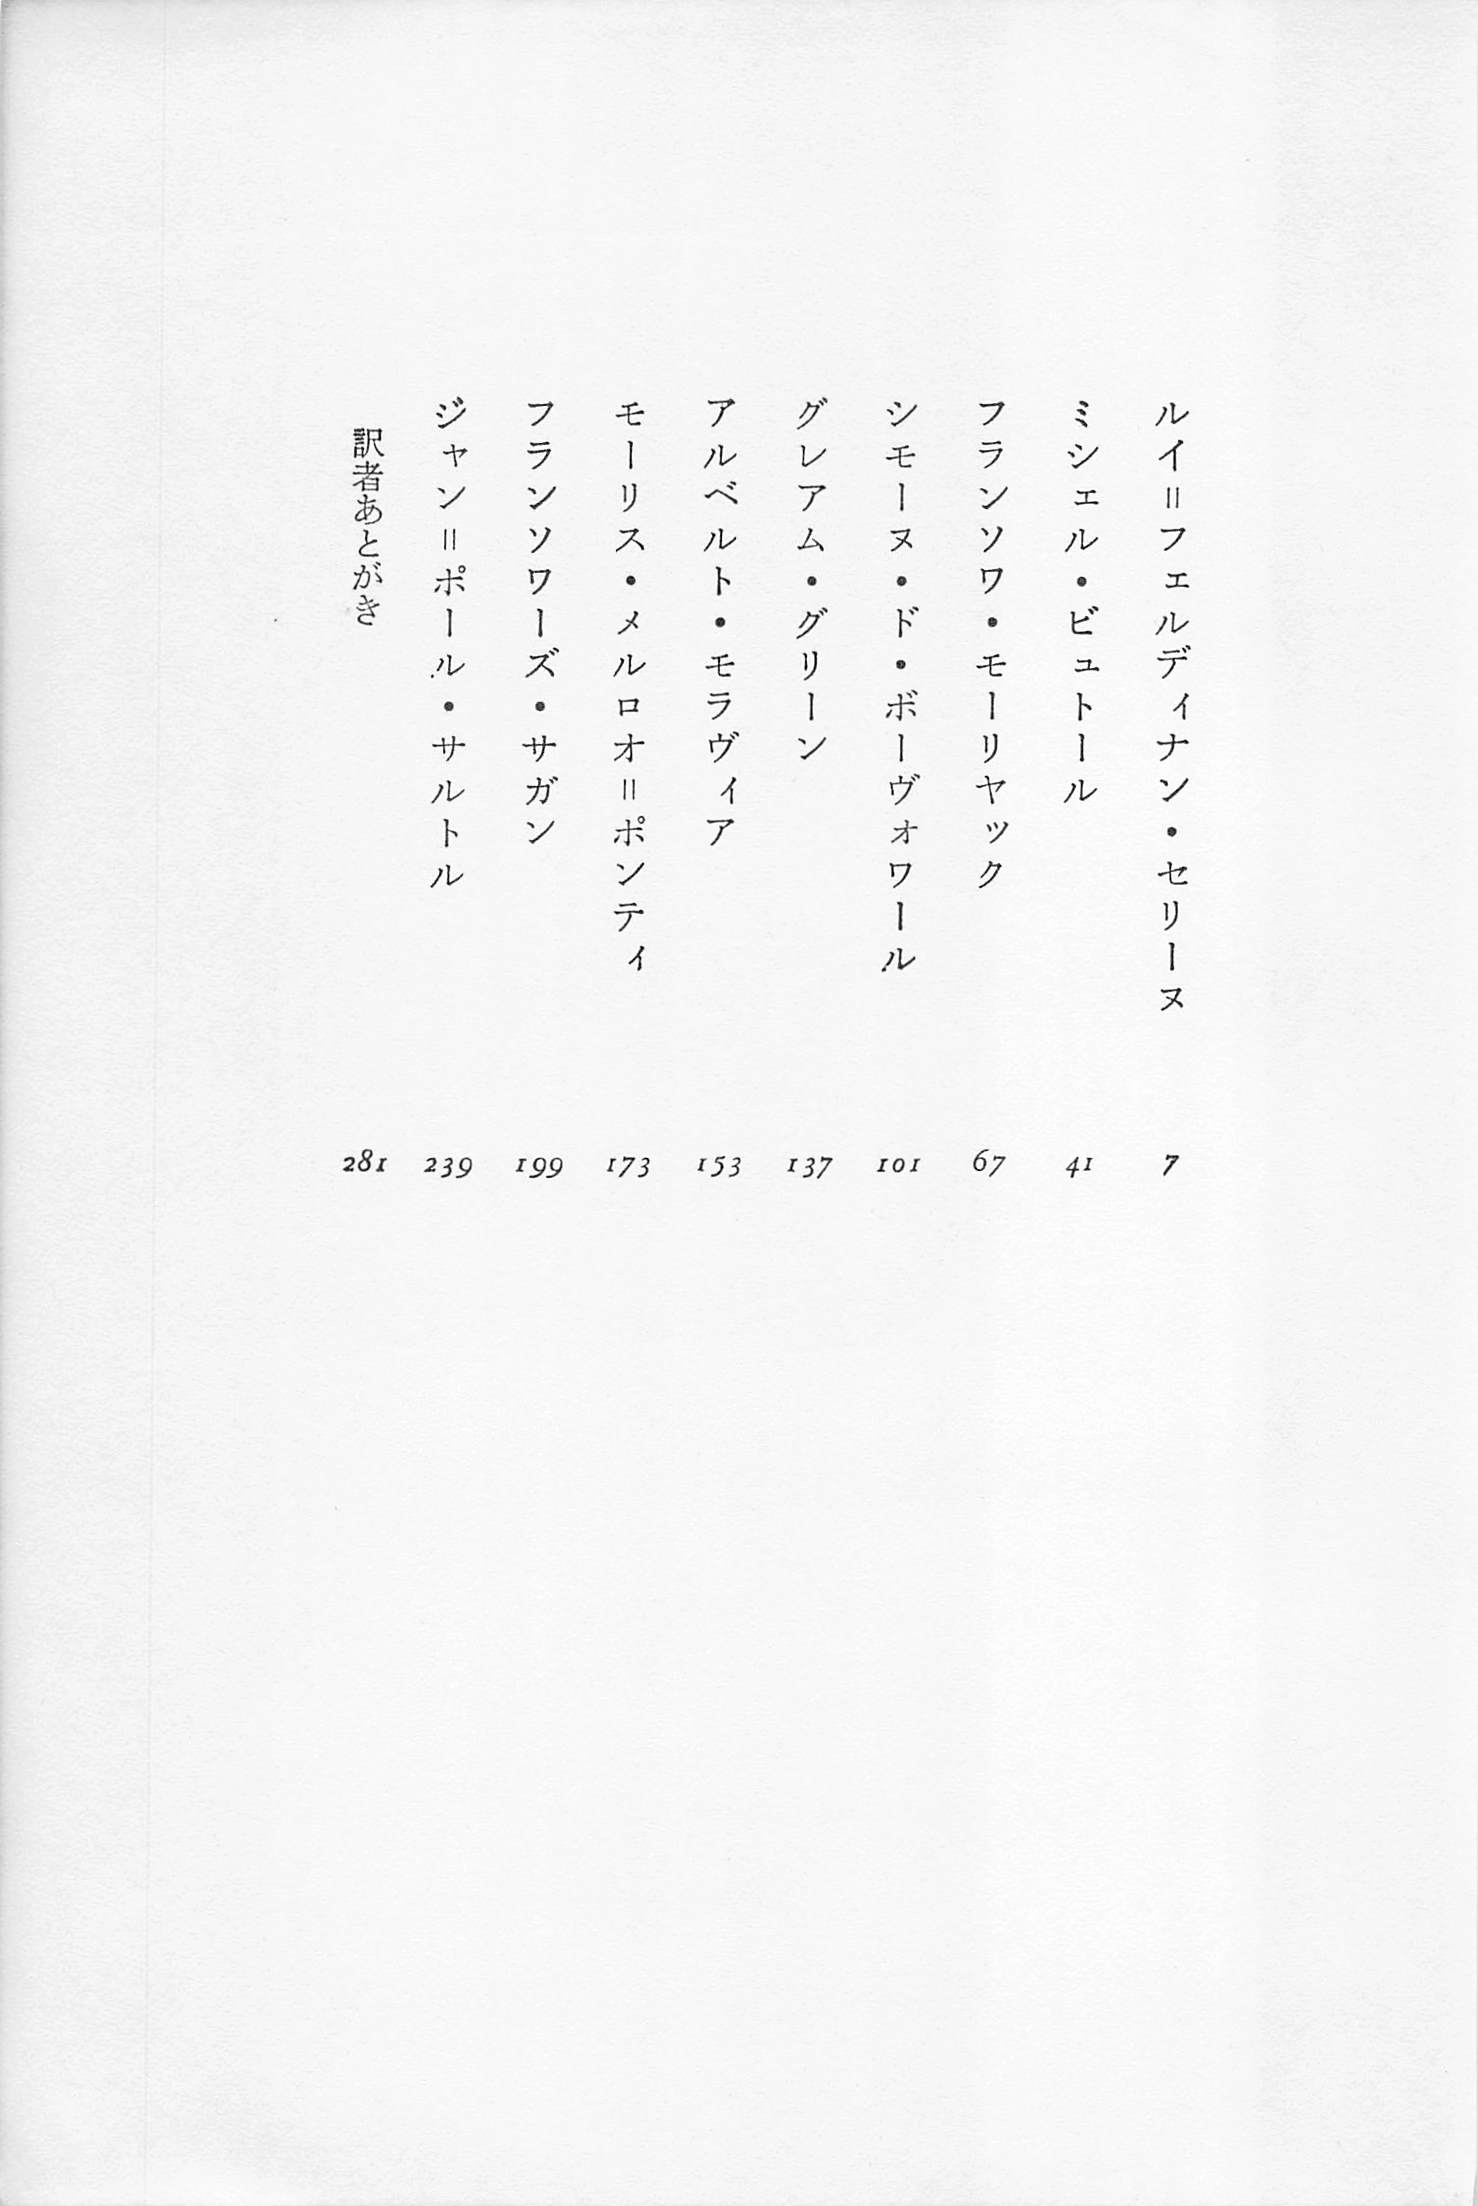 ルイ=フェルディナン・セリーヌ 7
ミシェル・ビュトール 41
フランソワ・モーリヤック 67
シモーヌ・ド・ボーヴォワール 101
グレアム・グリーン 137
アルベルト・モラヴィア 153
モーリス・メルロオ=ポンティ 173
フランソワーズ・サガン 199
ジャン=ポール・サルトル 239
訳者あとがき 281